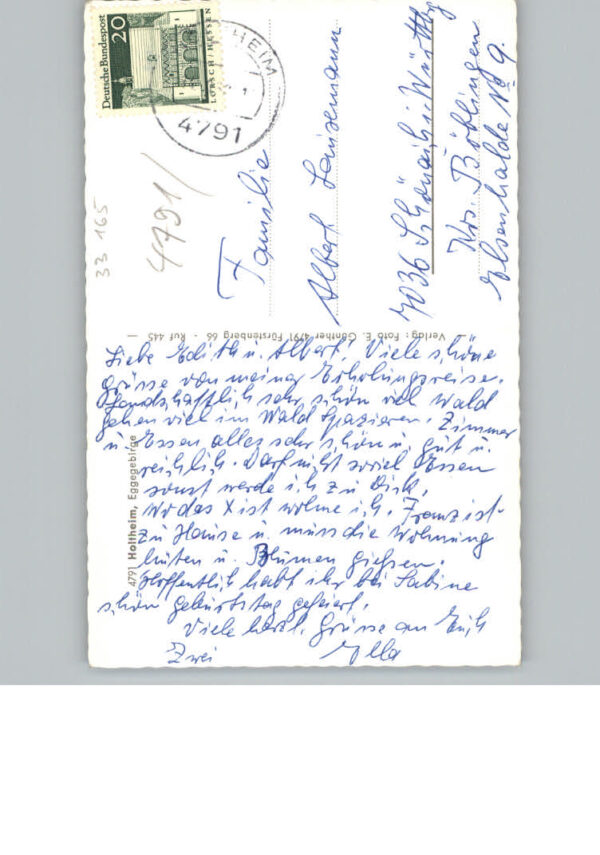 Deutsche Bundespost
20
LORSCH / HESSEN
HEIM
4791
33 165
4791/
Familie
Albert
7036 Schönaich i. Württbg
Krs. Böblingen
Elsenhalde No 9.
Verlag: Foto E. Günther 4791 Fürstenberg 66 - Ruf 445
4791 Holtheim, Eggegebirge
Liebe Edith u. Albert! Viele schöne
Grüsse von meiner Erholungsreise.
Landschaftlich sehr schön viel Wald
gehen viel im Wald spazieren. Zimmer
u. Essen alles sehr schön u. gut u.
reichlich. Darf nicht soviel Essen
sonst werde ich zu Dick.
Wo das X ist wohne ich. Franz ist
zu Hause u. muss die Wohnung
hüten u. Blumen giessen.
Hoffentlich habt ihr bei Sabine
schön Geburtstag gefeiert.
Viele herzl. Grüsse an Euch
Zwei Ella